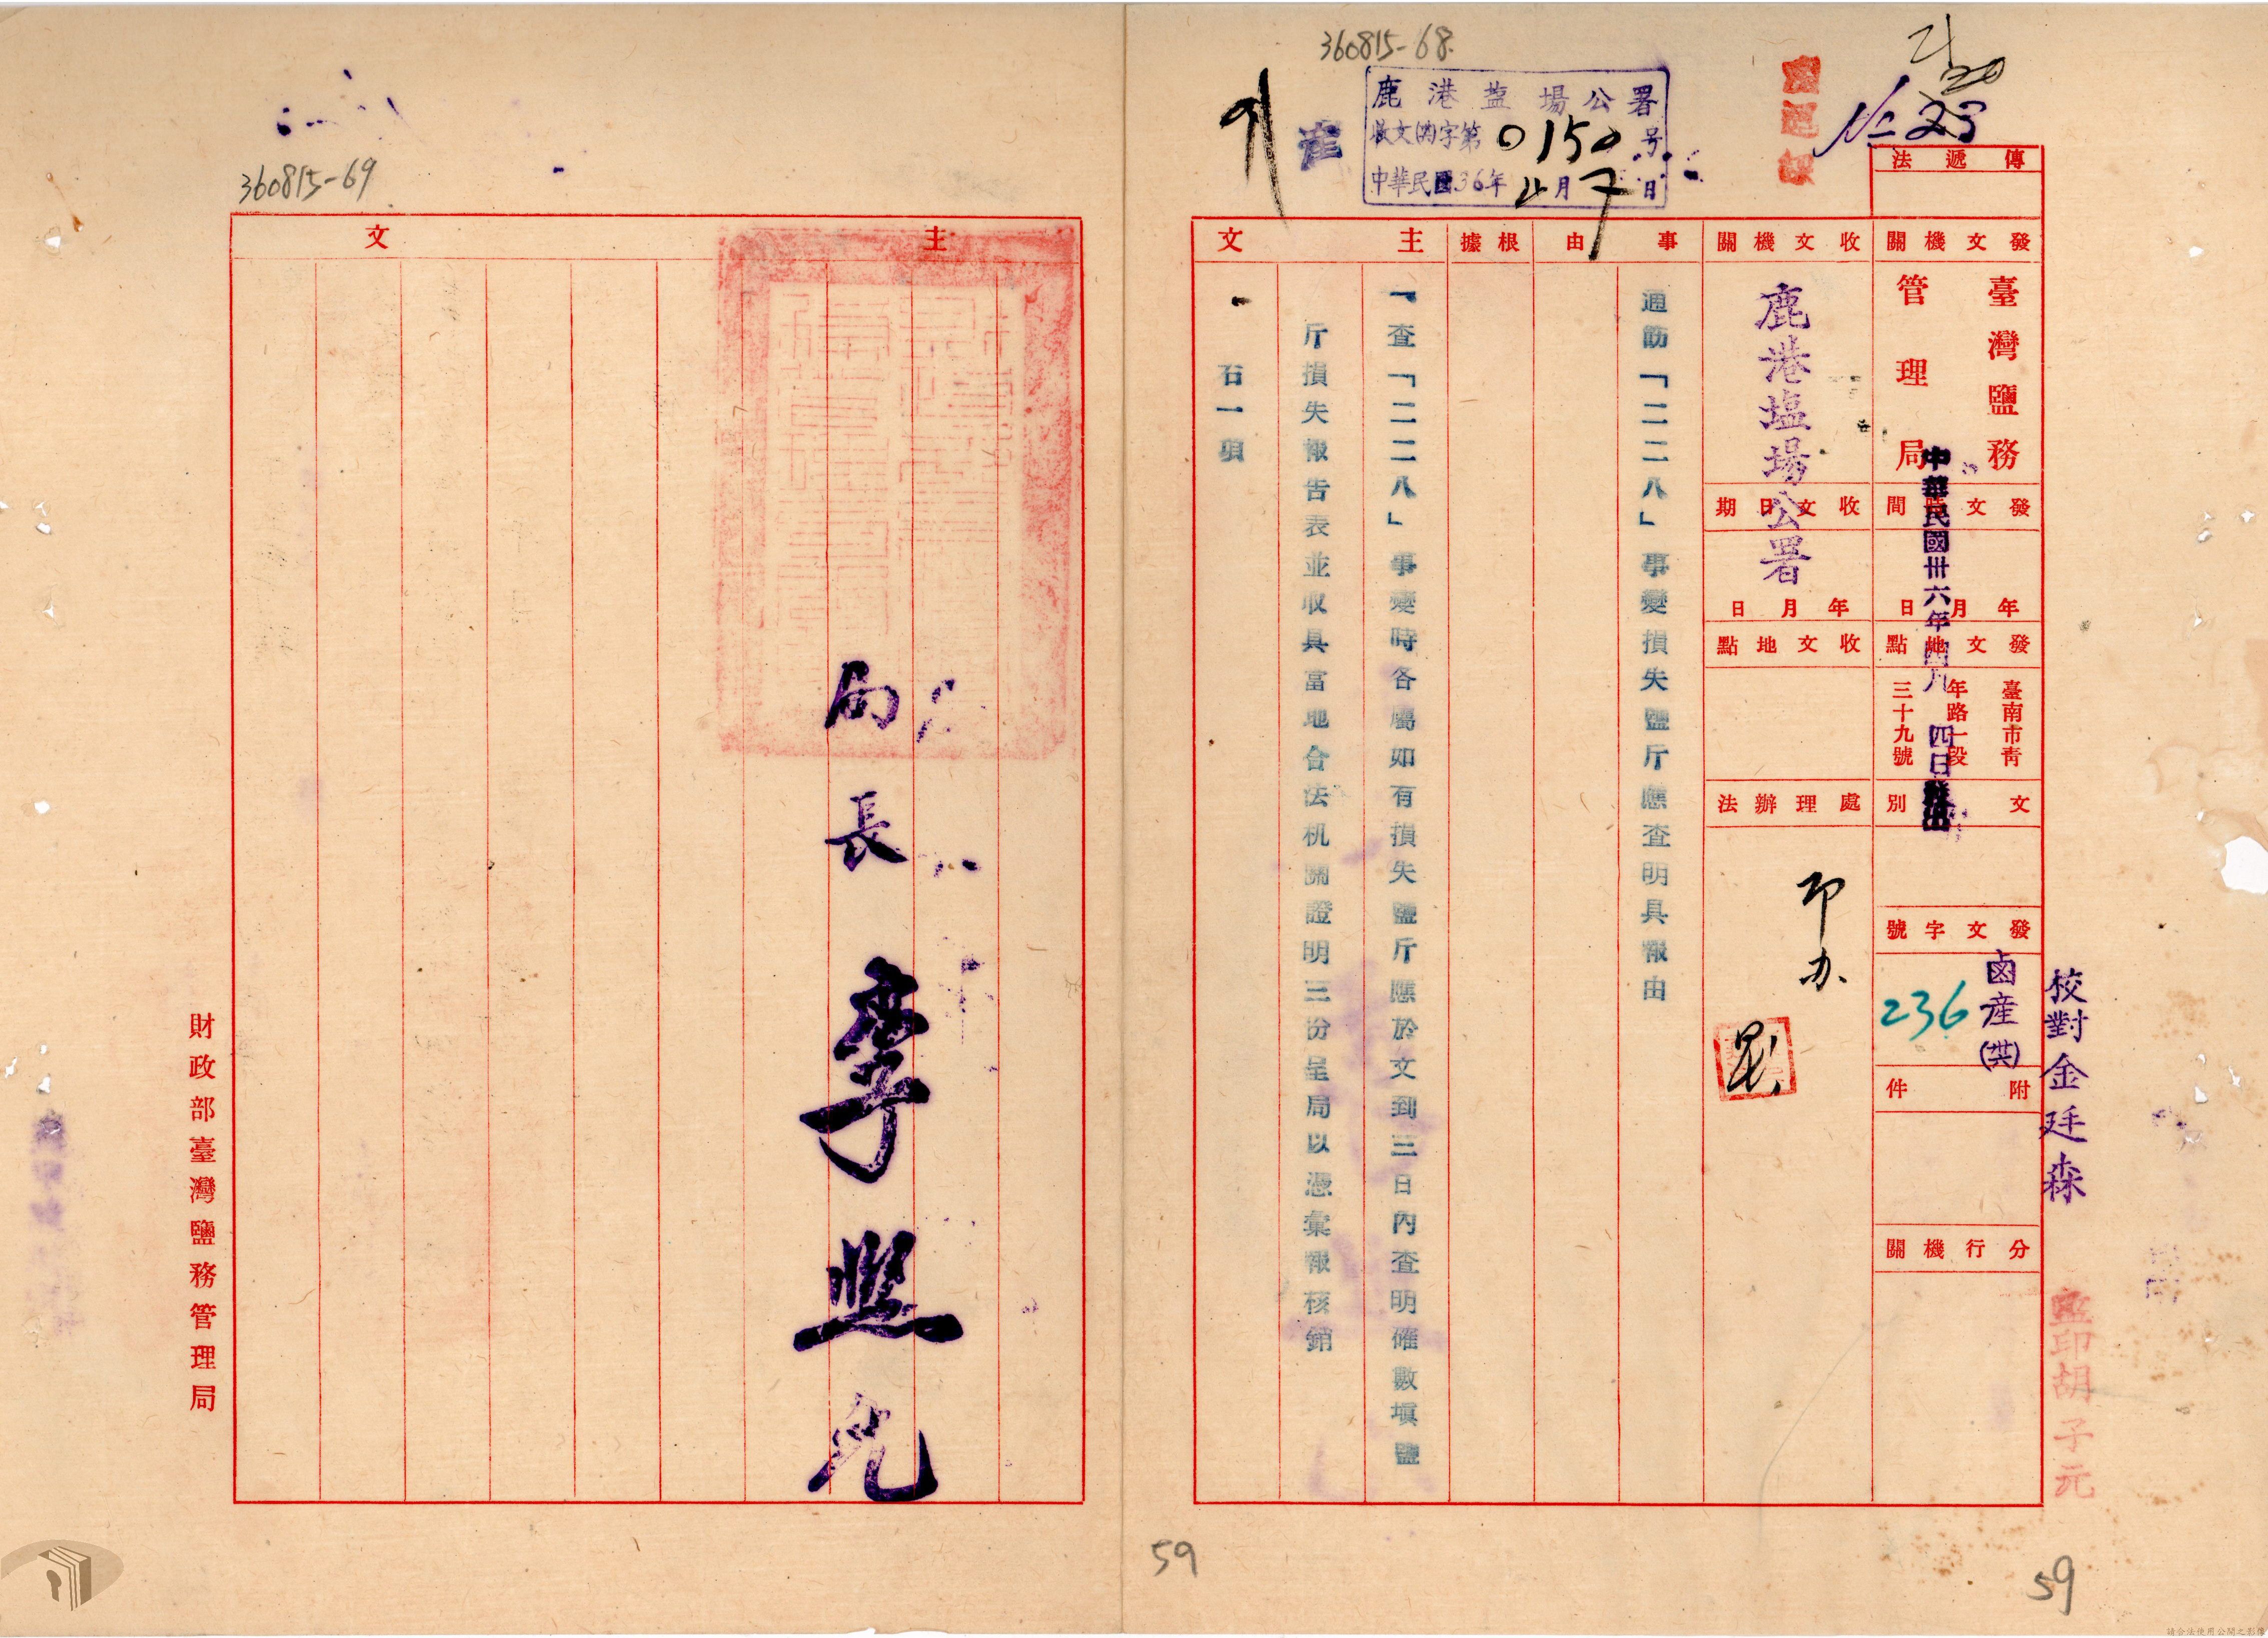 360815-68.
鹿港塩場公署
收文(內字第0150号
中華民國36年4月7日
崔
傳遞法
發文機關
臺灣鹽務
管理局
發文時間
年月日
中華民國卅六年四月四日發出
發文地點
臺南市青
年路一段
三十九號
文別
發文字號
鹵產(共)
236
附件
分行機關
校對金廷森
監印胡子元
收文機關
鹿港塩場公署
收文日期
年月日
收文地點
處理辦法
印办
事由
通飭「二二八」事變損失鹽斤應查明具報由
根據
主文
一、查「二二八」事變時各屬如有損失鹽斤應於文到三日內查明確數填鹽
斤損失報告表並取具當地合法机關證明三份呈局以憑彙報核銷
一
右一項
59
59
360815-69
主文
局長李
財政部臺灣鹽務管理局
請合法使用公開之影像